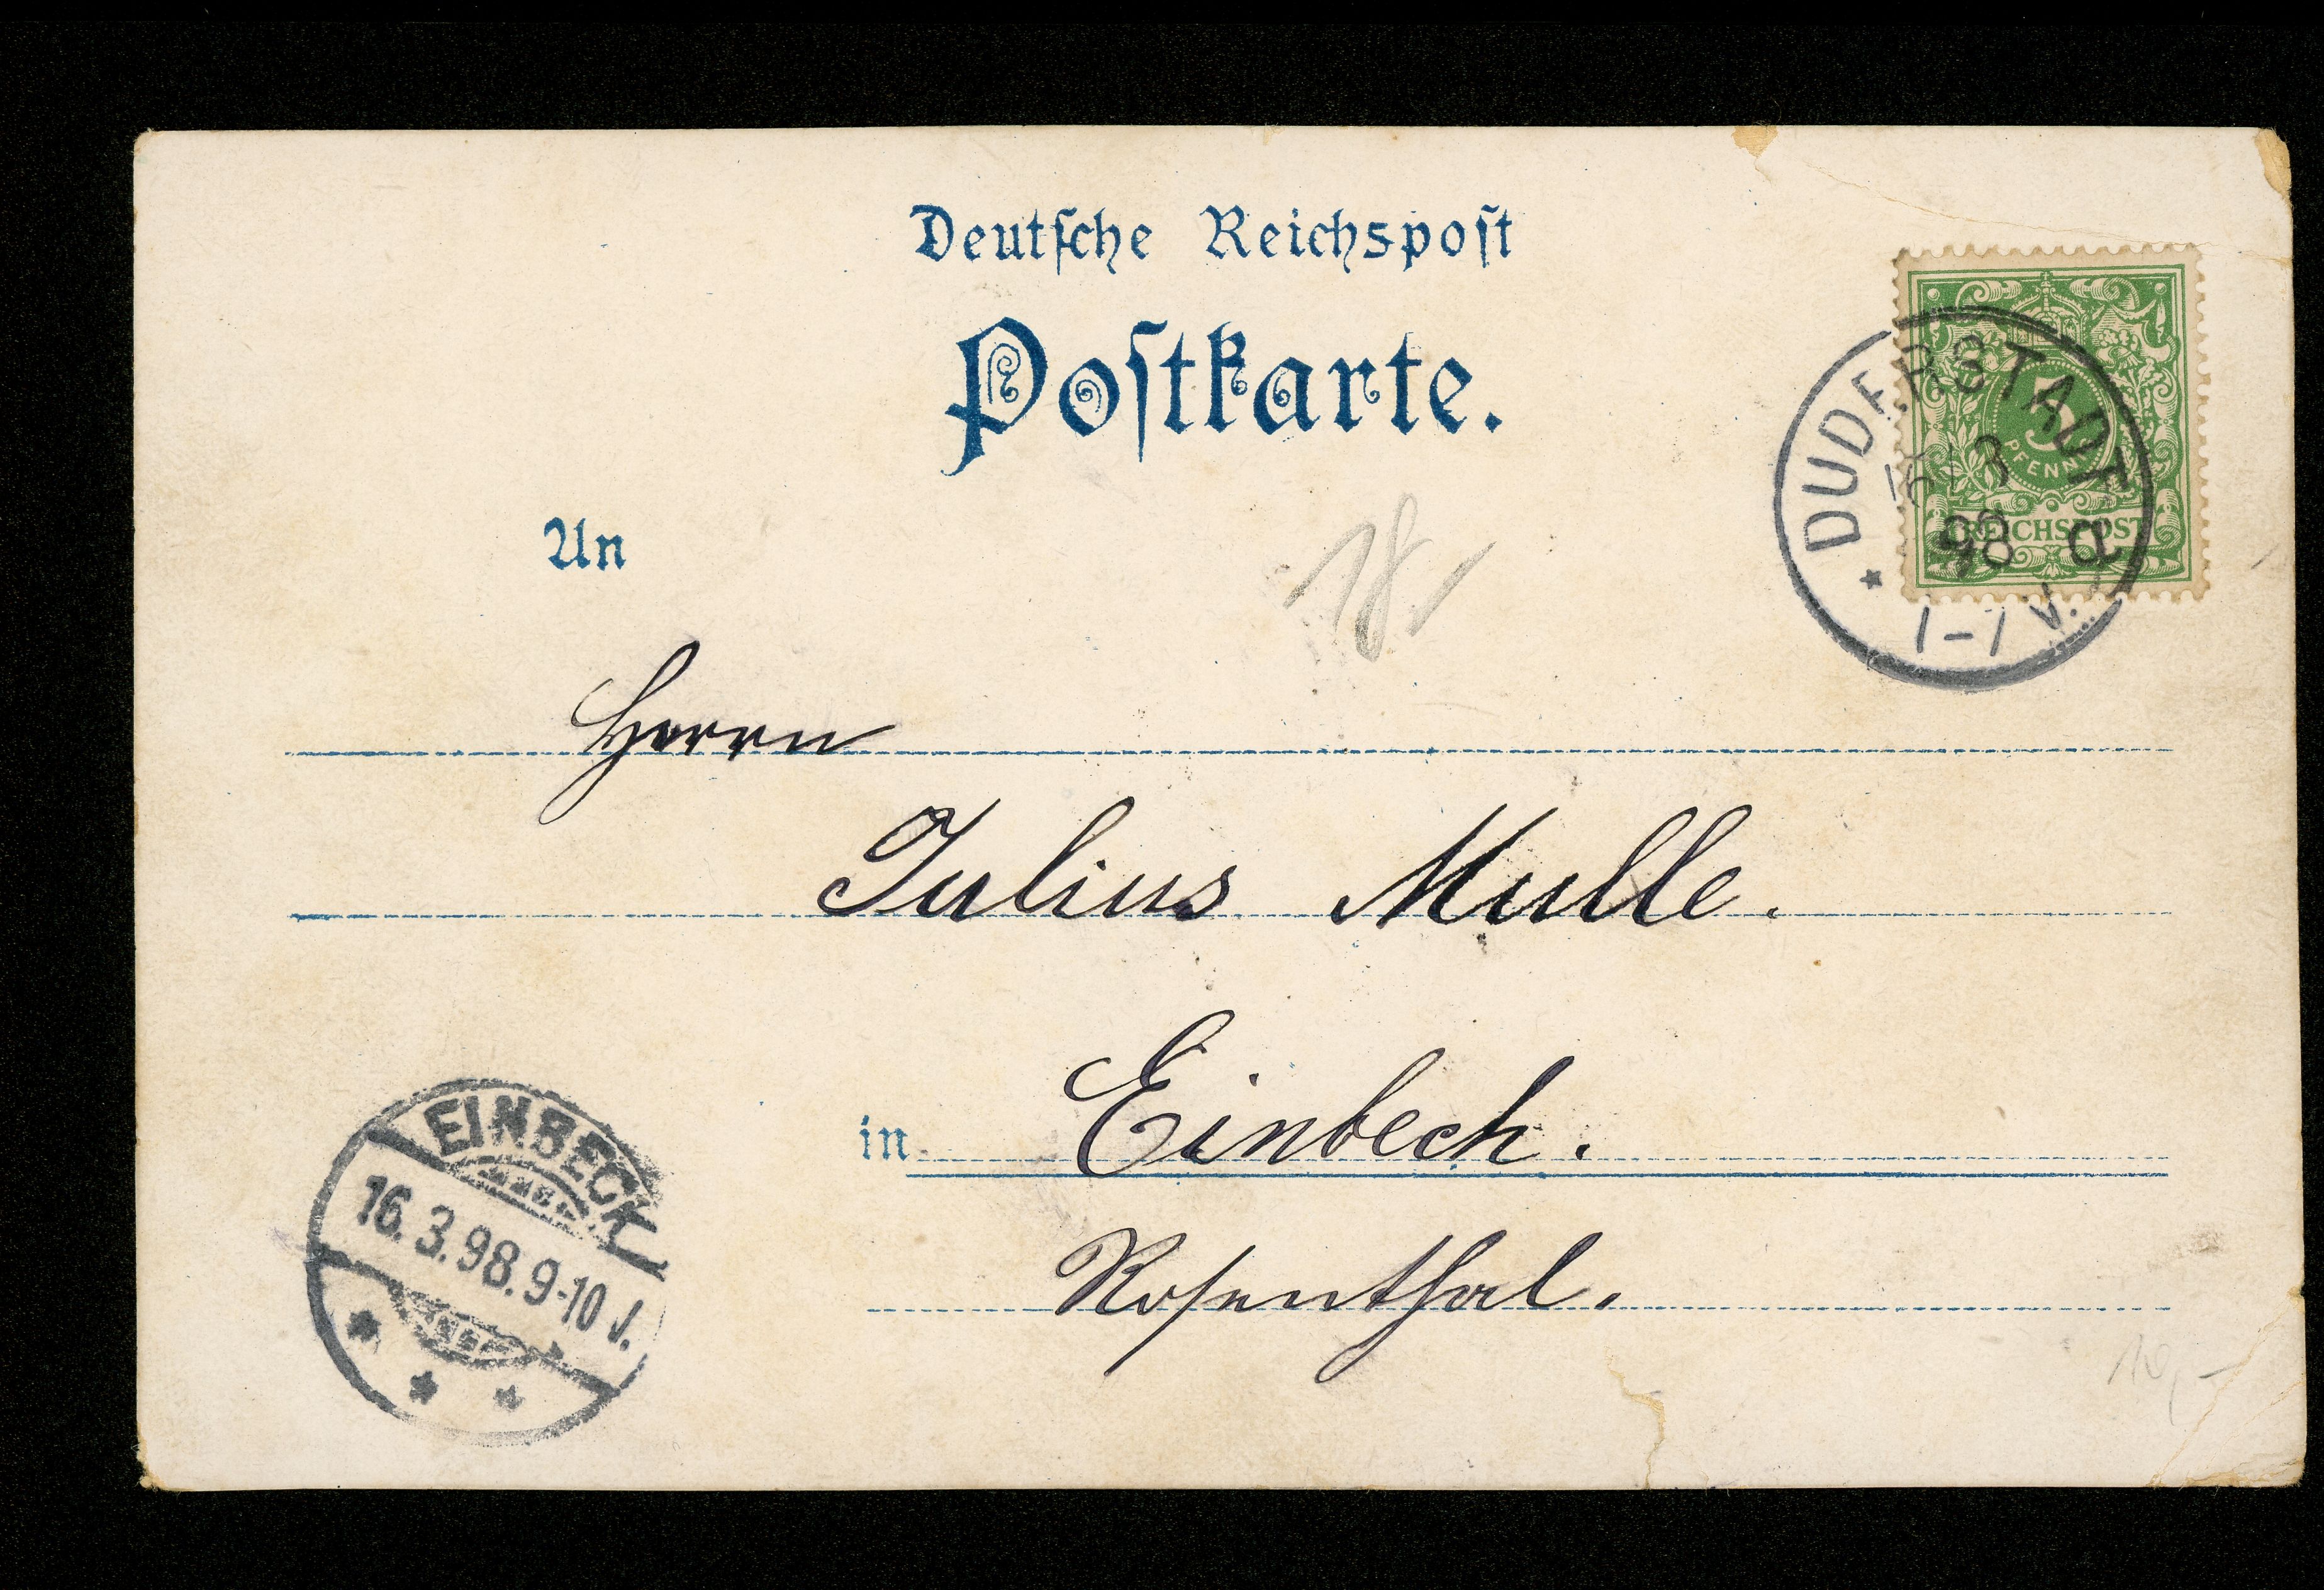 Deutsche Reichspost
Postkarte.
An
Herrn
Julius Mulle.
in Einbeck.
Rosenthal.
DUDERSTADT
3
98 a
1-7 V.
5
PFENNIG
REICHSPOST
18
EINBECK
16. 3. 98. 9-10 V.
10,-